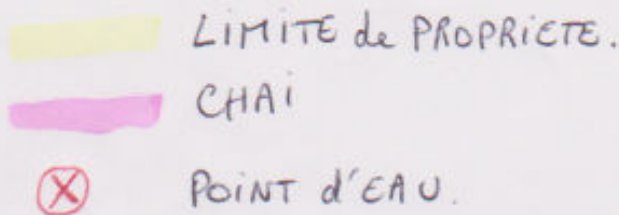 LIMITE de PROPRIETE.
CHAI
POINT d'EAU.